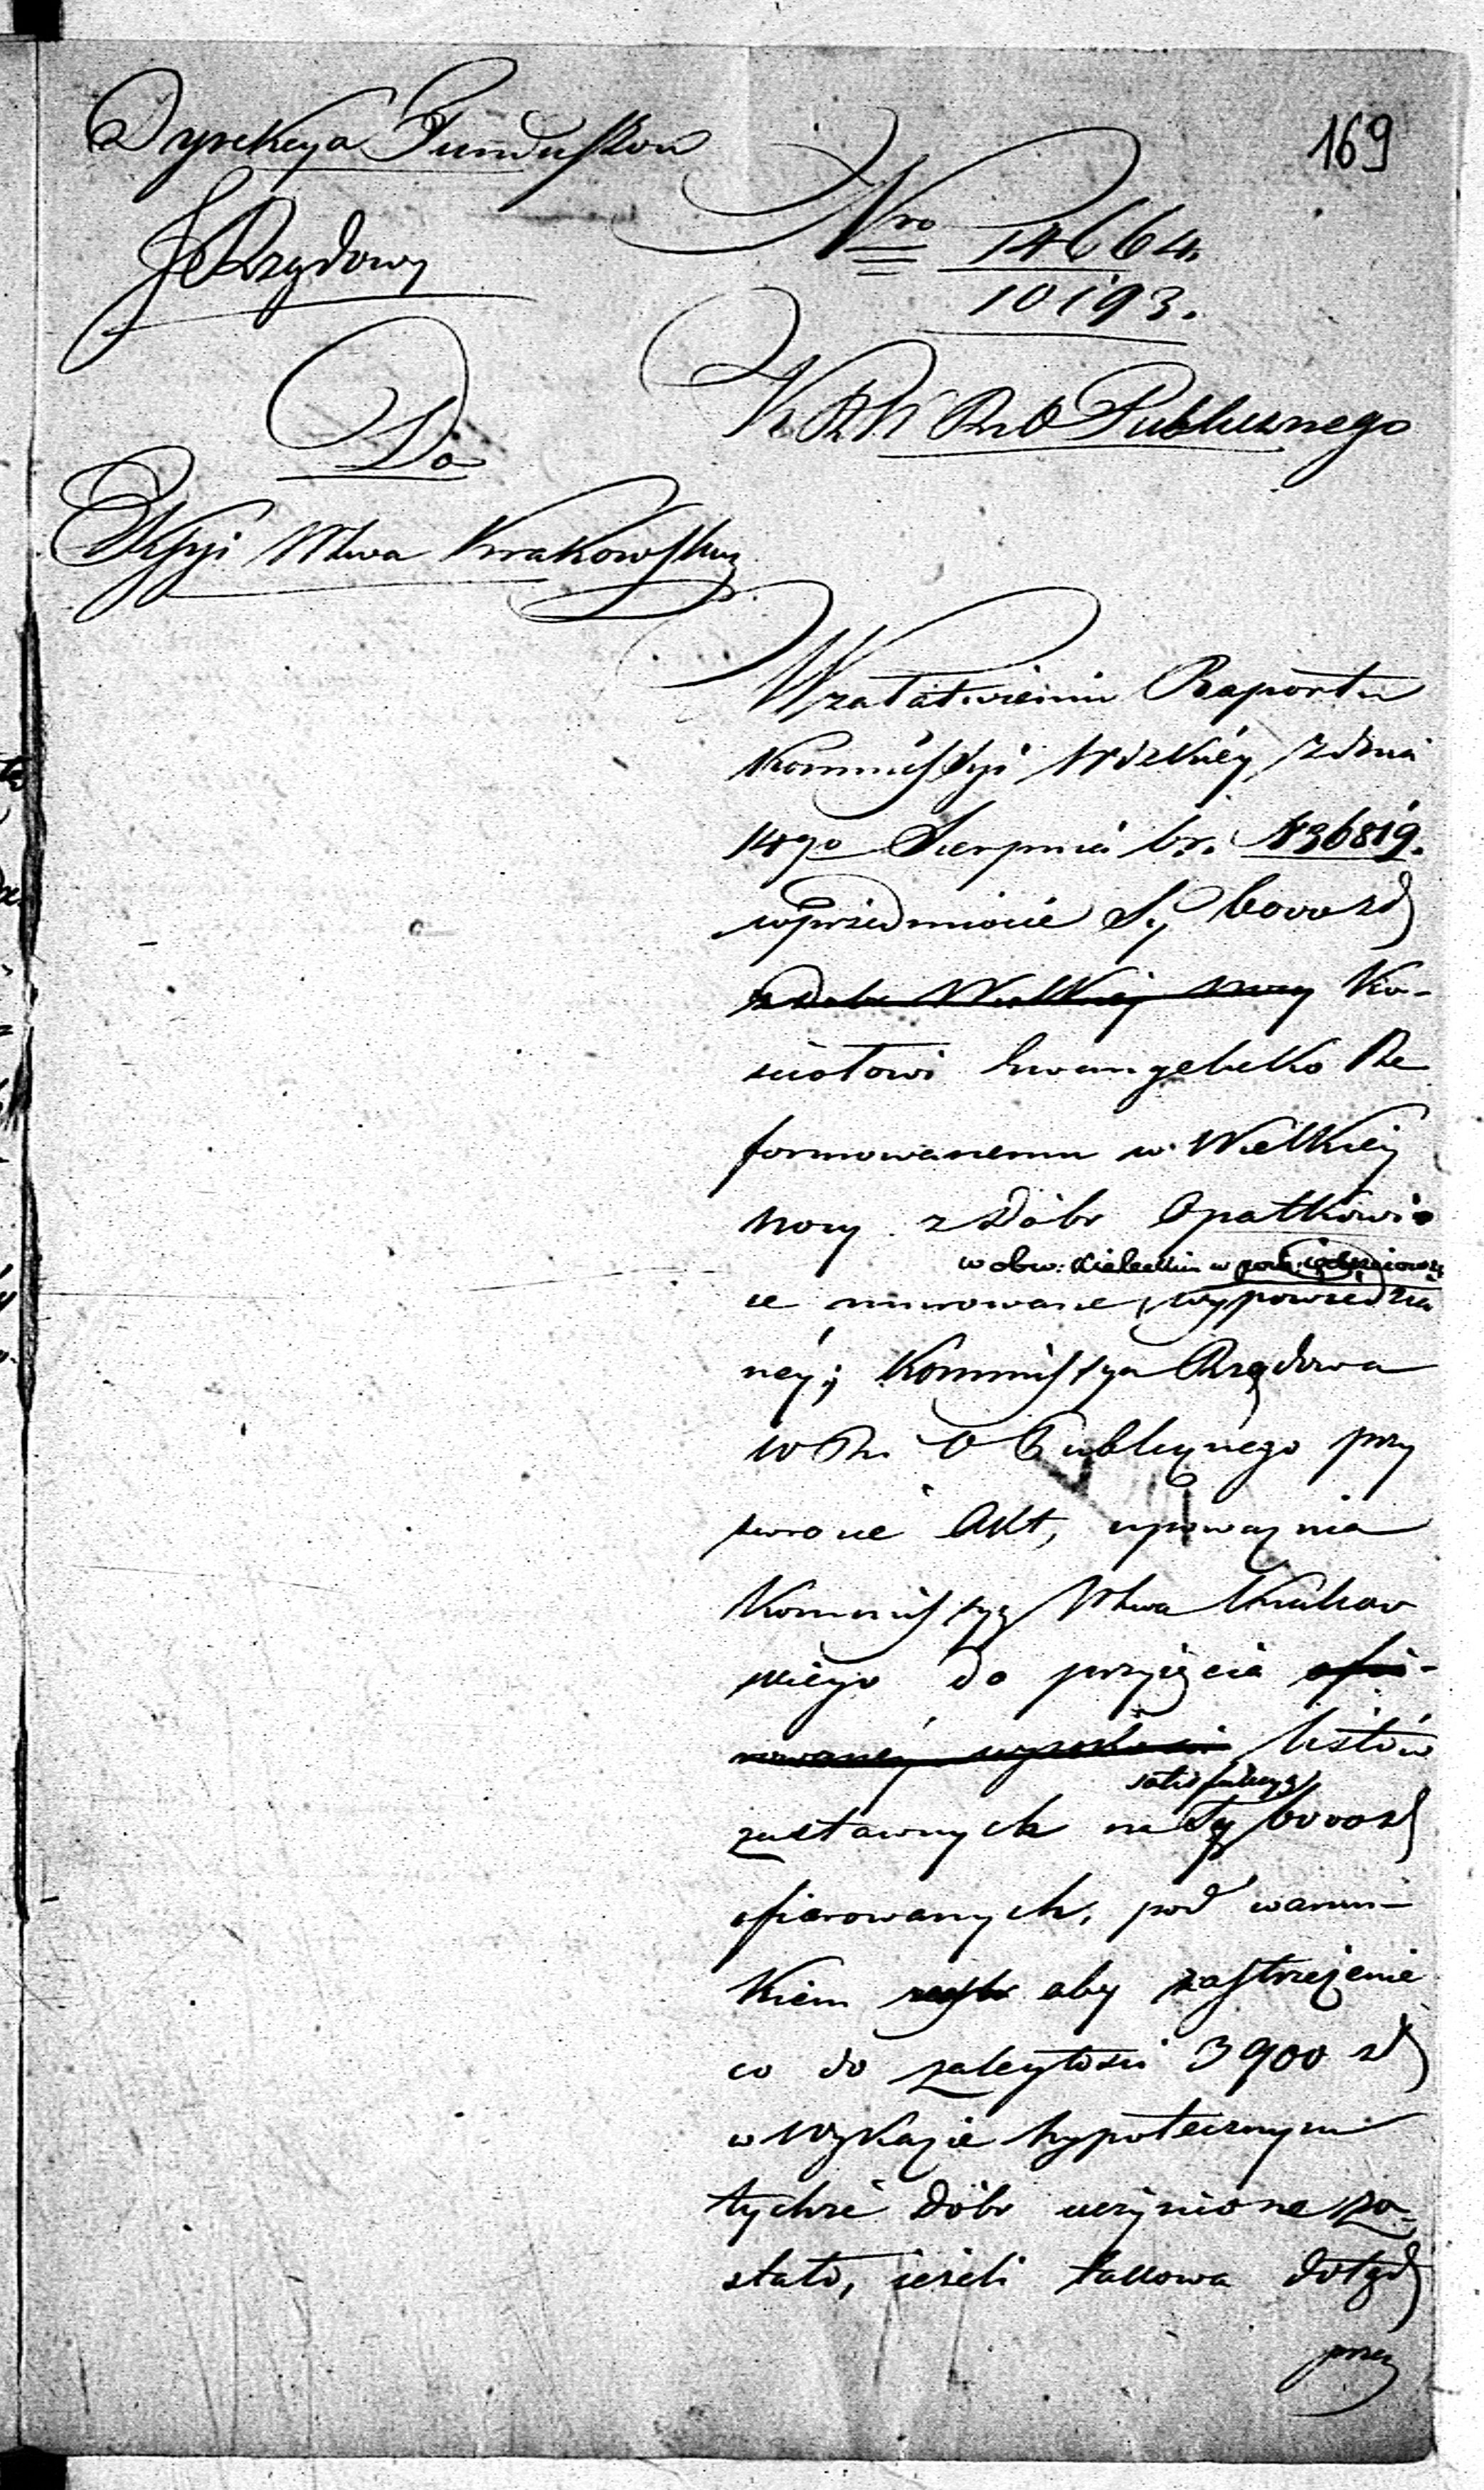 169
Dyrekcya Funduszów
J Rządowy
Nro 14664.
10193.
Do
K R W R i O Publicznego
Kssyi Wtwa Krakowskiego
W załatwieniu Raportu
Kommissyi Wdzkiéy z dnia
14go Sierpnia b.r. N 36819.
w przedmiocie Sy 6000 zł
z dóbr Wielkiej nocy Ko-
sciołowi Ewangelicko Re
formowanemu w Wielkiey
nocy z dóbr Opatkowi
w obw: Kieleckim w
ce murowane, wypowiedzia
néy; Kommissya Rządowa
W R. O Publicznego przy
zwrocie Akt, upoważnia
Kommissyą Wtwa Krakow
skiego do przyięcia ofia-
rowanéy wysokości listów
zastawnych na Sy 6000 zł
ofiarowanych, pod warun-
kiem aby zastrzeżenie
co do zaległości 3900 zł
w Wykazie hypotecznym
tychże dóbr uczynione zo-
stało, jeżeli takowa dotąd
przez